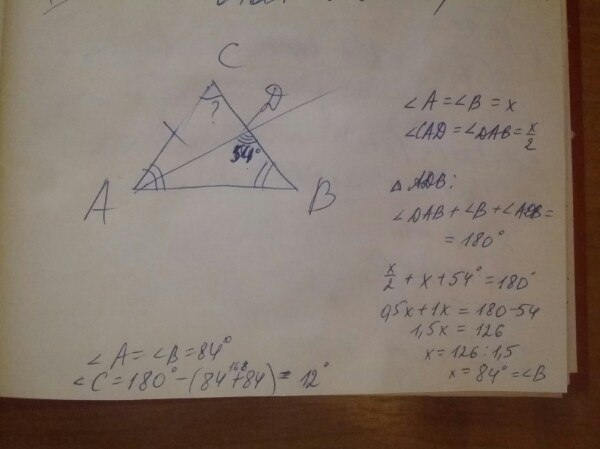 C
?
D
54°
A
B
∠A = ∠B = x
∠CAD = ∠DAB = x/2
△ ADB:
∠DAB + ∠B + ∠ADB =
= 180°
x/2 + x + 54° = 180°
0,5x + 1x = 180 - 54
1,5x = 126
x = 126 : 1,5
x = 84° = ∠B
∠A = ∠B = 84°
168
∠C = 180° - (84 + 84) = 12°